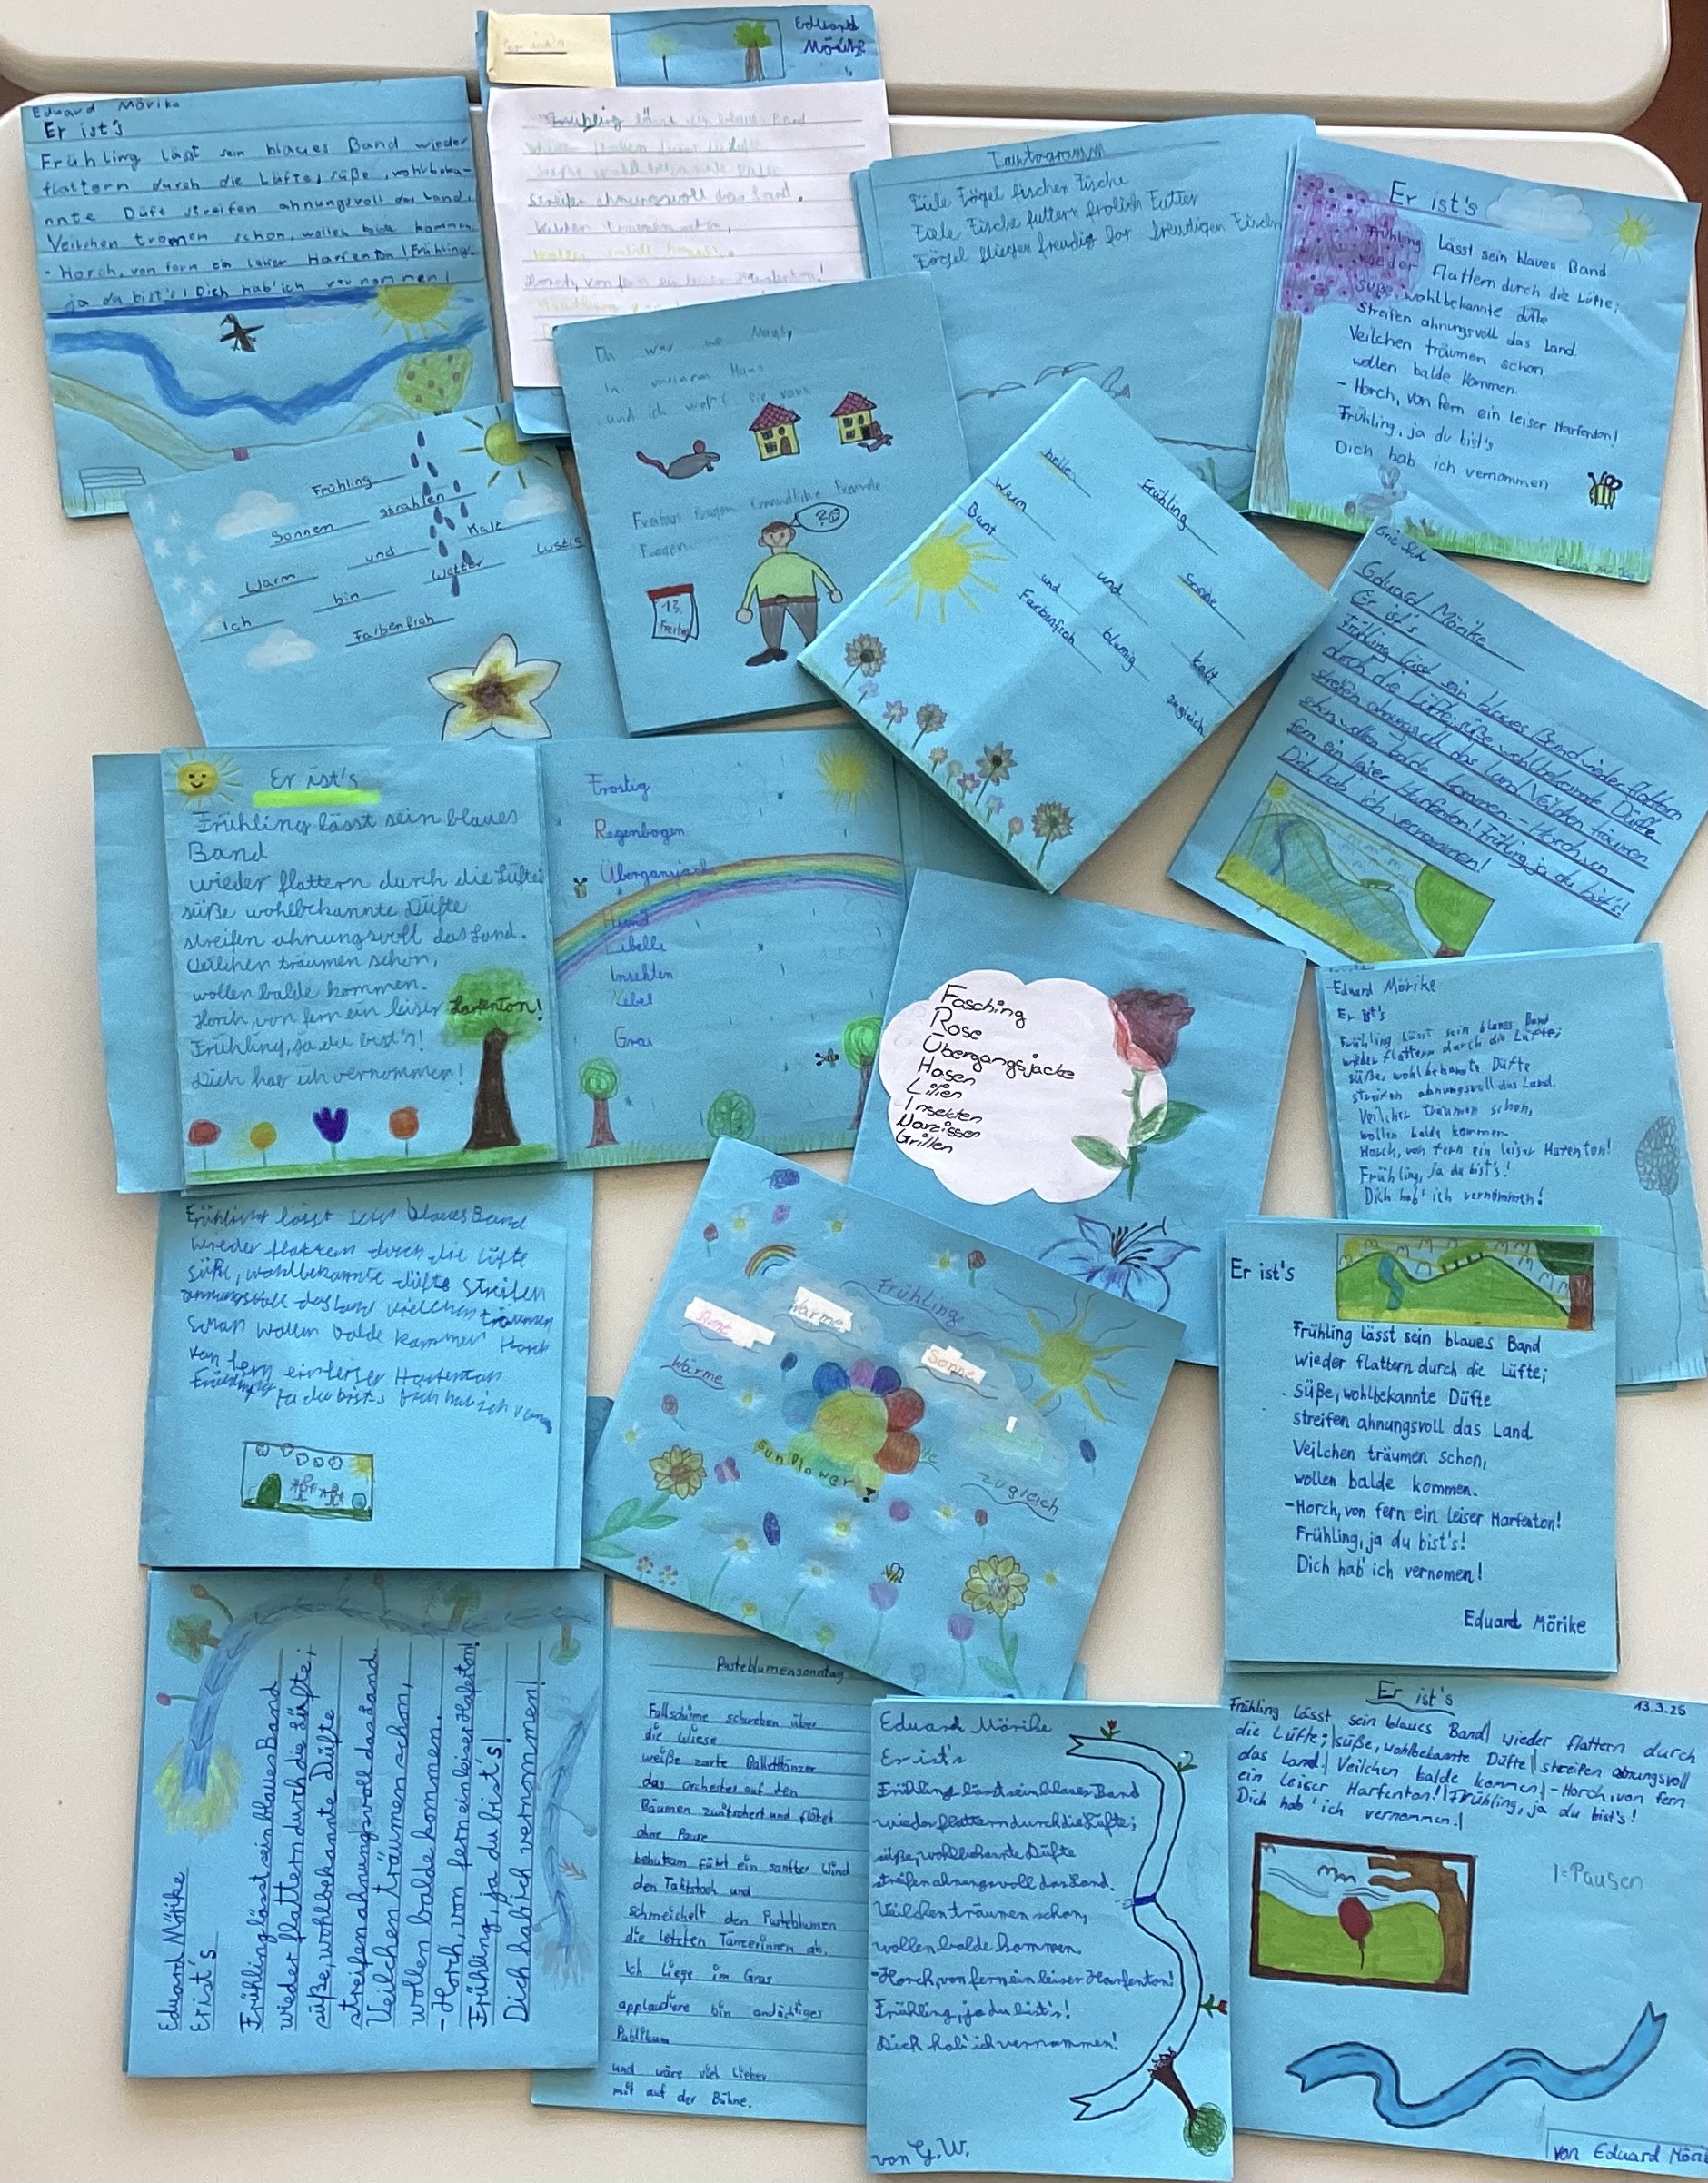 Eduard Mörike
Er ist's
Frühling lässt sein blaues Band wieder
flattern durch die Lüfte, süße, wohlbeka-
nnte Düfte streifen ahnungsvoll das Land.
Veilchen trömen schon, wollen balde kommen
- Horch, von fern ein leiser Harfenton! Frühling,
ja du bist's! Dich hab' ich vernommen!
Eduard
Mörike
Frühling
streifen ahnungsvoll das Land.
Tautogramm
Er ist's
Frühling lässt sein blaues Band
wieder flattern durch die Lüfte;
süße, wohlbekannte düfte
streifen ahnungsvoll das Land.
Veilchen träumen schon,
wollen balde kommen.
- Horch, von fern ein leiser Harfenton!
Frühling, ja du bist's
Dich hab ich vernommen
Da war ne
in meinem Haus
und ich warf sie raus
Freitags fragen freundliche Freunde
Fragen.
?
13.
Freitag
Frühling
Sonnen strahlen
Warm und Kalt
Ich bin Wetter Lustig
Farbenfroh
hellen Frühling
Warm und Sonne
Bunt und blumig kalt
Farbenfroh zugleich
Eduard Mörike
Er ist's
Frühling lässt sein blaues Band wieder flattern
durch die Lüfte; süße wohlbekannte Düfte
streifen ahnungsvoll das Land Veilchen träumen
schon wollen balde kommen - Horch, von
fern ein leiser Harfenton! Frühling ja du bist's!
Dich hab ich vernommen!
Er ist's
Frühling lässt sein blaues
Band
wieder flattern durch die Lüfte;
süße wohlbekannte Düfte
streifen ahnungsvoll das Land.
Veilchen träumen schon,
wollen balde kommen.
Horch, von fern ein leiser Harfenton!
Frühling, ja du bist's!
Dich hab ich vernommen!
Frostig
Regenbogen
Übergansjacke
Hund
Libelle
Insekten
Nebel
Gras
Fasching
Rose
Übergangsjacke
Hasen
Lilien
Insekten
Narzissen
Grillen
Eduard Mörike
Er ist's
Frühling lässt sein blaues Band
wieder flattern durch die Lüfte;
süße, wohlbekannte Düfte
streifen ahnungsvoll das Land.
Veilchen träumen schon,
wollen balde kommen.
Horch, von fern ein leiser Harfenton!
Frühling, ja du bist's!
Dich hab' ich vernommen!
Frühling lässt sein blaues Band
wieder flattern durch die Lüfte
süße, wohlbekannte düfte streifen
ahnungsvoll das Land vielchen träumen
schon wollen balde kommen Horch
von fern ein leiser Harfenton
Frühling Ja du bist's Dich hab ich
Frühling
Bunt
Wärme
Sonne
Wärme
sunflower
zugleich
Er ist's
Frühling lässt sein blaues Band
wieder flattern durch die Lüfte;
süße, wohlbekannte Düfte
streifen ahnungsvoll das Land.
Veilchen träumen schon,
wollen balde kommen.
-Horch, von fern ein leiser Harfenton!
Frühling, ja du bist's!
Dich hab' ich vernomen!
Eduard Mörike
Eduard Mörike
Er ist's
Frühling lässt ein blaues Band
wieder flattern durch die Lüfte;
süße, wohlbekannte Düfte
streifen ahnungsvoll das Land.
Veilchen träumen schon,
wollen balde kommen.
- Horch, von fern ein leiser Hafenton!
Frühling, ja du bist's!
Dich hab ich vernommen!
Pusteblumensonntag
Fallschirme schweben über
die Wiese
weiße zarte Balletttänzer
das Orchester auf den
Bäumen zwitschert und flötet
ohne Pause
behutsam führt ein sanfter Wind
den Taktstock und
schmeichelt den Pusteblumen
die letzten Tänzerinnen ab.
Ich liege im Gras
applaudiere bin andächtiges
Publikum
und wäre viel lieber
mit auf der Bühne.
Eduard Mörike
Er ist's
Frühling lässt sein blaues Band
wieder flattern durch die Lüfte;
süße, wohlbekannte Düfte
streifen ahnungsvoll das Land.
Veilchen träumen schon,
wollen balde kommen.
-Horch, von fern ein leiser Harfenton!
Frühling, ja du bist's!
Dich hab' ich vernommen!
von G.W.
Er ist's
13.3.25
Frühling lässt sein blaues Band| wieder flattern durch
die Lüfte; |süße, wohlbekannte Düfte |streifen ahnungsvoll
das Land| Veilchen balde kommen| - Horch, von fern
ein leiser Harfenton! |Frühling, ja du bist's!
Dich hab' ich vernommen.|
|=Pausen
von Eduard Möri